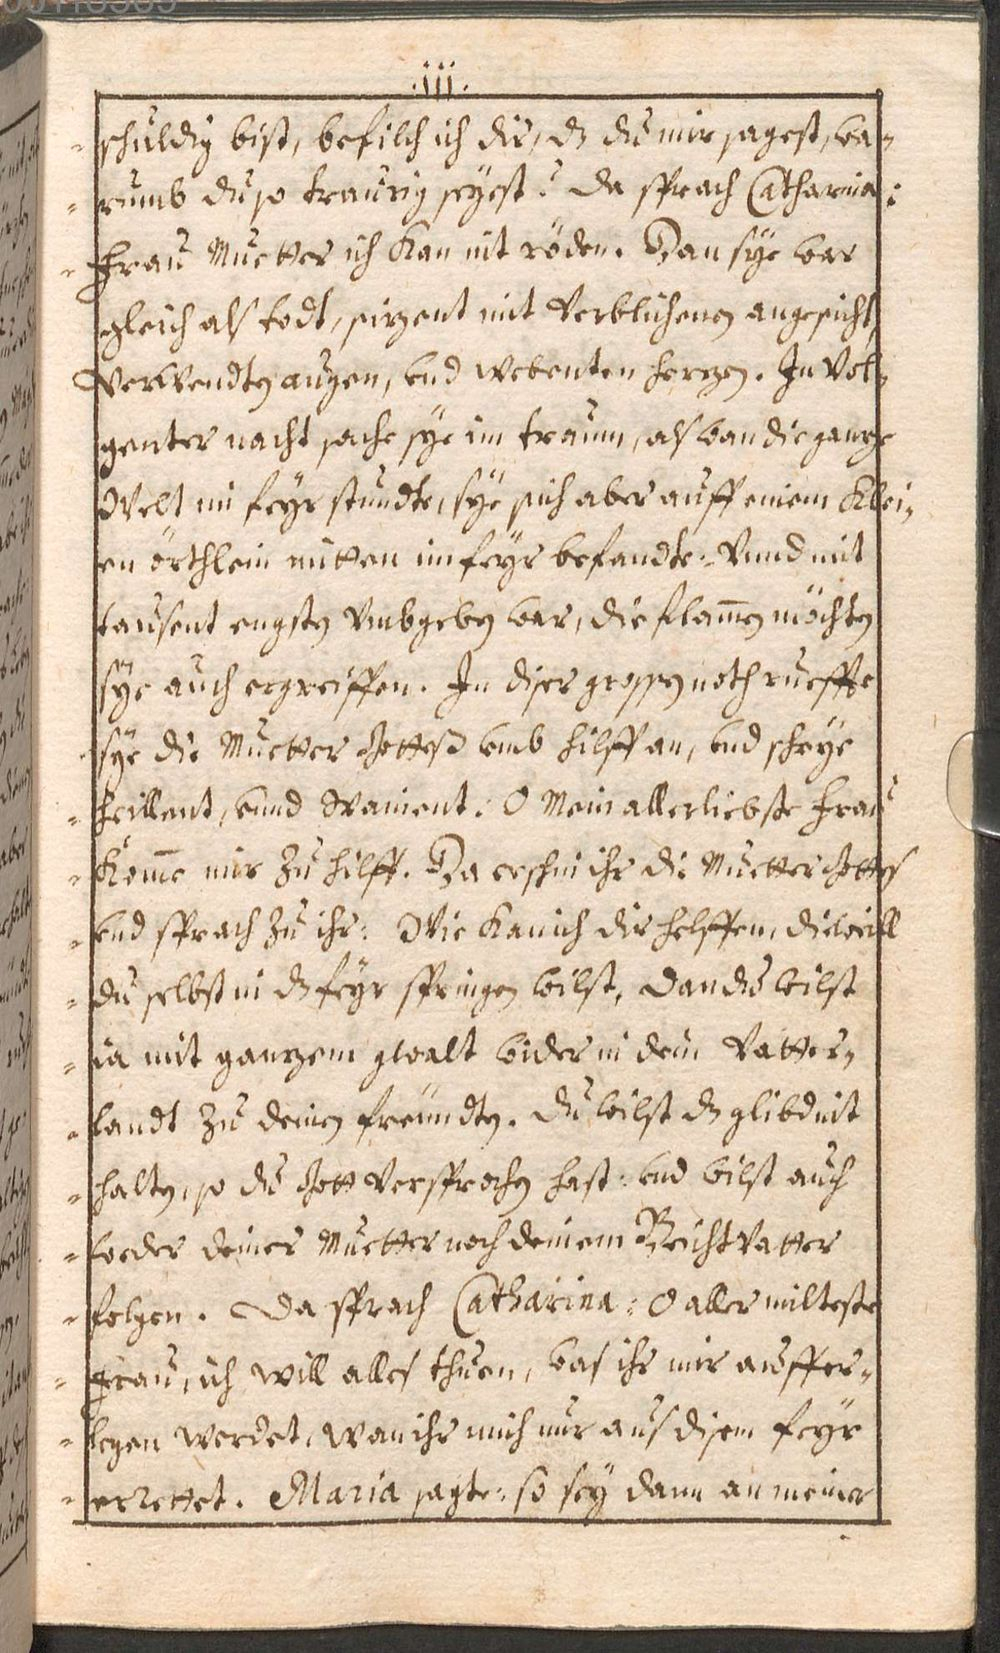 .111.
schuldig bist, befilch ich dir, dz du mir sagest, wa-
rumb du so traurig seyest? da sprach Catharina:
Frau Muetter ich kan nit röden. Dan sye war
gleich als todt, sitzent mit verblichenen angesicht,
verwendten augen, und webenten hertzen. In vol-
genter nacht sache sye im traum, als wan die gantze
Welt in feyr stundte, sye sich aber auff einem klei-
en örthlein mitten im feyr befandte: Vnnd mit
tausent engsten vmbgeben war, die flam̄en möchten
sye auch ergreiffen. In diser grossen noth rueffte
sye die Muetter Gottess umb hilff an, und schrye
heillent, unnd Wainent: O Mein allerliebste Frau
kom̄e mir zu hilff. Da erschin ihr die Muetter Gottes
und sprach zu ihr: Wie kan ich dir helffen, dieweill
du selbst in dz feyr springen wilst, dan du wilst
ia mit gantzem gwalt wider in dein Vatter-
landt zu deinen freundten. du wilst dz glibd nit
halten, so du Gott versprochen hast: und wilst auch
weder deiner Muetter noch deinem Beicht Vatter
folgen. Da sprach Catharina: O aller milteste
Frau, ich will alles thuen, was ihr mir auffer-
legen werdet, wan ihr mich nur aus disem feyr
errettet. Maria sagte: so sey dann an meiner